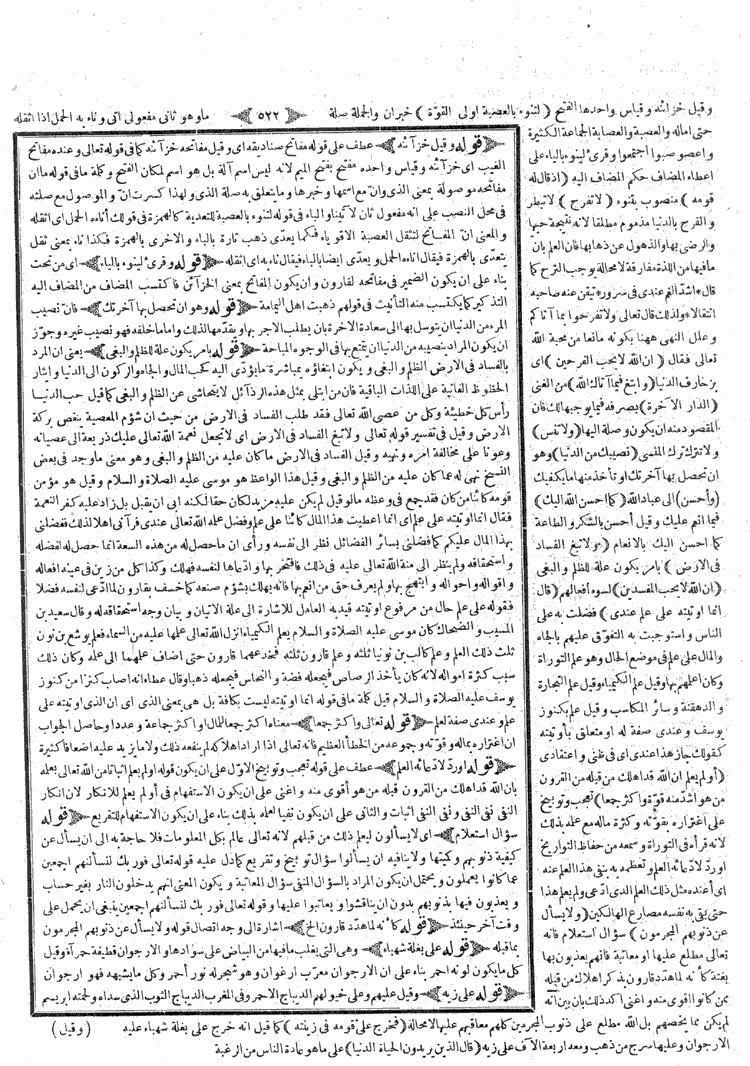 وقيل خزائنه وقياس واحدها الفتح ( لتنوء بالعصبة اولى القوة ) خبران والجملة صلة ﴿ ٥٢٢ ﴾ ماوهو ثانى مفعولى اتى وناء به الحمل اذا اثقله
حتى اماله والعصبة والعصابة الجماعة الكثيرة
واعصوصبوا اجتمعوا وقرئ لينوء بالياء على
اعطاء المضاف حكم المضاف اليه ( اذ قال له
قومه ) منصوب بتنوء ( لا تفرح ) لا تبطر
والفرح بالدنيا مذموم مطلقا لانه نتيجة حبها
والرضى بها والذهول عن ذهابها فان العلم بان
مافيها من اللذة مفارقة لامحالة يوجب الترح كما
قال * اشد الغم عندى فى سرور * تيقن عنه صاحبه
انتقالا * ولذلك قال تعالى ولا تفرحوا بما آتاكم
وعلل النهى ههنا بكونه مانعا من محبة الله
تعالى فقال ( ان الله لا يحب الفرحين ) اى
بزخارف الدنيا ( وابتغ فيما آتاك الله ) من الغنى
( الدار الآخرة ) بصرفه فيما يوجبها لك فان
المقصود منه ان يكون وصلة اليها ( ولا تنس )
ولا تترك ترك المنسى ( نصيبك من الدنيا ) وهو
ان تحصل بها آخرتك او تأخذ منها ما يكفيك
( وأحسن ) الى عباد الله ( كما احسن الله اليك )
فيما انعم عليك وقيل أحسن بالشكر والطاعة
كما احسن اليك بالانعام ( ولا تبغ الفساد
فى الارض ) بامر يكون علة للظلم والبغى
( ان الله لا يحب المفسدين ) لسوء أفعالهم ( قال
انما اوتيته على علم عندى ) فضلت به على
الناس واستوجبت به التفوق عليهم بالجاه
والمال على علم فى موضع الحال وهو علم التوراة
وكان اعلمهم بها وقيل علم الكيمياء وقيل علم التجارة
والدهقنة وسائر المكاسب وقيل علم بكنوز
يوسف وعندى صفة له او متعلق باوتيته
كقولك جاز هذا عندى اى فى ظنى واعتقادى
( أو لم يعلم ان الله قد اهلك من قبله من القرون
من هو اشد منه قوة واكثر جمعا ) تعجب وتوبيخ
على اغتراره بقوته وكثرة ماله مع علمه بذلك
لانه قرأه فى التوراة وسمعه من حفاظ التواريخ
او رد لادعائه العلم وتعظمه به بنفى هذا العلم عنه
اى أعنده مثل ذلك العلم الذى ادعى ولم يعلم هذا
حتى يقى به نفسه مصارع الهالكين ( ولا يسأل
عن ذنوبهم المجرمون ) سؤال استعلام فانه
تعالى مطلع عليها او معاتبة فانهم يعذبون بها
بغتة كأنه لما هدد قارون بذكر اهلاك من قبله
ممن كانوا اقوى منه واغنى اكد ذلك بان بين انه
لم يكن مما يخصهم بل الله مطلع على ذنوب المجرمين كلهم معاقبهم عليها لامحالة ( فخرج على قومه فى زينته ) كما قيل انه خرج على بغلة شهباء عليه
الارجوان وعليها سرج من ذهب ومعه اربعة الآف على زيه ( قال الذين يريدون الحياة الدنيا ) على ماهو عادة الناس من الرغبة
( وقيل )
﴿ قوله وقيل خزآئنه ﴾ عطف على قوله مفاتح صناديقه اى وقيل مفاتحه خزآئنه كما فى قوله تعالى وعنده مفاتح
الغيب اى خزآئنه وقياس واحده مفتح بفتح الميم لانه ليس اسم آلة بل هو اسم لمكان الفتح وكلمة ما فى قوله ما ان
مفاتحه موصولة بمعنى الذى وان مع اسمها وخبرها وما يتعلق به صلة الذى ولهذا كسرت ان والموصول مع صلته
فى محل النصب على انه مفعول ثان لآتيناه والباء فى قوله لتنوء بالعصبة للتعدية كالهمزة فى قولك أناءه الحمل اى اثقله
والمعنى ان المفاتح لتثقل العصبة الاقوياء فكما يعدى ذهب تارة بالباء والاخرى بالهمزة فكذا ناء بمعنى ثقل
يتعدى بالهمزة فيقال اناءه الحمل ويعدى ايضا بالباء فيقال ناء به اى اثقله ﴿ قوله وقرئ لينوء بالياء ﴾ اى من تحت
بناء على ان يكون الضمير فى مفاتحه لقارون وان يكون المفاتح بمعنى الخزآئن فاكتسب المضاف من المضاف اليه
التذكير كما يكتسب منه التأنيث فى قولهم ذهبت اهل اليمامة ﴿ قوله وهو ان تحصل بها آخرتك ﴾ فان نصيب
المرء من الدنيا ان يتوسل بها الى سعادة الآخرة بان يطلب الاجر بها ويقدمها لذلك واما ما خلفه فهو نصيب غيره وجوز
ان يكون المراد بنصيبه من الدنيا ان يتمتع بها فى الوجوه المباحة ﴿ قوله بامر يكون علة للظلم والبغى ﴾ يعنى ان المراد
بالفساد فى الارض الظلم والبغى ويكون ابتغاؤه بمباشرة ما يؤدى اليه كحب المال والجاه والركون الى الدنيا وايثار
الحظوظ الفانية على اللذات الباقية فان من ابتلى بمثل هذه الرذآئل لا يتحاشى عن الظلم والبغى كما قيل حب الدنيا
رأس كل خطيئة وكل من عصى الله تعالى فقد طلب الفساد فى الارض من حيث ان شؤم المعصية ينقص بركة
الارض وقيل فى تفسير قوله تعالى ولا تبغ الفساد فى الارض اى لا تجعل نعمة الله تعالى عليك ذريعة الى عصيانه
وعونا على مخالفة امره ونهيه وقيل الفساد فى الارض ما كان عليه من الظلم والبغى وهو معنى ما وجد فى بعض
النسخ نهى له عما كان عليه من الظلم والبغى وقيل هذا الواعظ هو موسى عليه الصلاة والسلام وقيل هو مؤمن
قومه كائنا من كان فقد جمع فى وعظه ما لو قيل لم يكن عليه مزيد لكان حقا لكنه ابى ان يقبل بل زاد عليه كفر النعمة
فقال انما اوتيته على علم اى انما اعطيت هذا المال كائنا على علم وفضل عمله الله تعالى عندى فرآنى اهلا لذلك ففضلنى
بهذا المال عليكم كما فضلنى بسائر الفضائل نظر الى نفسه ورأى ان ما حصل له من هذه السعة انما حصل له لفضله
واستحقاقه ولم ينظر الى منة الله تعالى عليه فى ذلك فافتخر بها وادعاها لنفسه فهلك وكذا كل من زين فى عينه افعاله
واقواله واحواله وابتهج بها ولم يعرف حق من انعم بها فانه يهلك بشؤم صنعه كما خسف بقارون لما ادعى لنفسه فضلا
فقوله على علم حال من مرفوع اوتيته قيد به العامل للاشارة الى علة الاتيان وبيان وجه استحقاقه له وقال سعيد بن
المسيب والضحاك كان موسى عليه الصلاة والسلام يعلم الكيمياء انزل الله تعالى علمها عليه من السماء فعلم يوشع بن نون
ثلث ذلك العلم وعلم كالب بن يوفنا ثلثه وعلم قارون ثلثه فخدعهما قارون حتى اضاف علمهما الى علمه وكان ذلك
سبب كثرة امواله لانه كان يأخذ الرصاص فيجعله فضة والنحاس فيجعله ذهبا وقال عطاء انه اصاب كنزا من كنوز
يوسف عليه الصلاة والسلام قيل كلمة ما فى قوله انما اوتيته ليست بكافة بل هى بمعنى الذى اى ان الذى اوتيته على
علم وعندى صفة لعلم ﴿ قوله تعالى واكثر جمعا ﴾ معناه اكثر جمعا للمال او اكثر جماعة وعددا وحاصل الجواب
ان اغتراره بماله وقوته وجموعه من الخطأ العظيم فانه تعالى اذا اراد اهلاكه لم ينفعه ذلك ولا ما يزيد عليه اضعافا كثيرة
﴿ قوله او رد لادعائه العلم ﴾ عطف على قوله تعجب وتوبيخ الاول على ان يكون قوله اولم يعلم اثباتا من الله تعالى بعلمه
بان الله قد اهلك من القرون قبله من هو أقوى منه واغنى على ان يكون الاستفهام فى أولم يعلم للانكار لان انكار
النفى نفى النفى ونفى النفى اثبات والثانى على ان يكون نفيا لعلمه بذلك بناء على ان يكون الاستفهام للتقريع ﴿ قوله
سؤال استعلام ﴾ اى لا يسألون ليعلم ذلك من قبلهم لانه تعالى عالم بكل المعلومات فلا حاجة به الى ان يسأل عن
كيفية ذنوبهم وكميتها ولا ينافيه ان يسألوا سؤال توبيخ وتقريع كما دل عليه قوله تعالى فوربك لنسألنهم اجمعين
عما كانوا يعملون ويحتمل ان يكون المراد بالسؤال المنفى سؤال المعاتبة ويكون المعنى انهم يدخلون النار بغير حساب
ويعذبون فيها بذنوبهم بدون ان يناقشوا ويعاتبوا عليها وقوله تعالى فوربك لنسألنهم اجمعين ينبغى ان يحمل على
وقت آخر حينئذ ﴿ قوله كأنه لما هدد قارون الخ ﴾ اشارة الى وجه اتصال قوله ولا يسأل عن ذنوبهم المجرمون
بما قبله ﴿ قوله على بغلة شهباء ﴾ وهى التى يغلب ما فيها من البياض على سوادها والارجوان قطيفة حمرآء وقيل
كل ما يكون لونه احمر بناء على ان الارجوان معرب ارغوان وهو شجر له نور أحمر وكل ما يشبهه فهو ارجوان
﴿ قوله على زيه ﴾ وقيل عليهم وعلى خيولهم الديباج الاحمر وفى المغرب الديباج الثوب الذى سداه ولحمته ابريسم